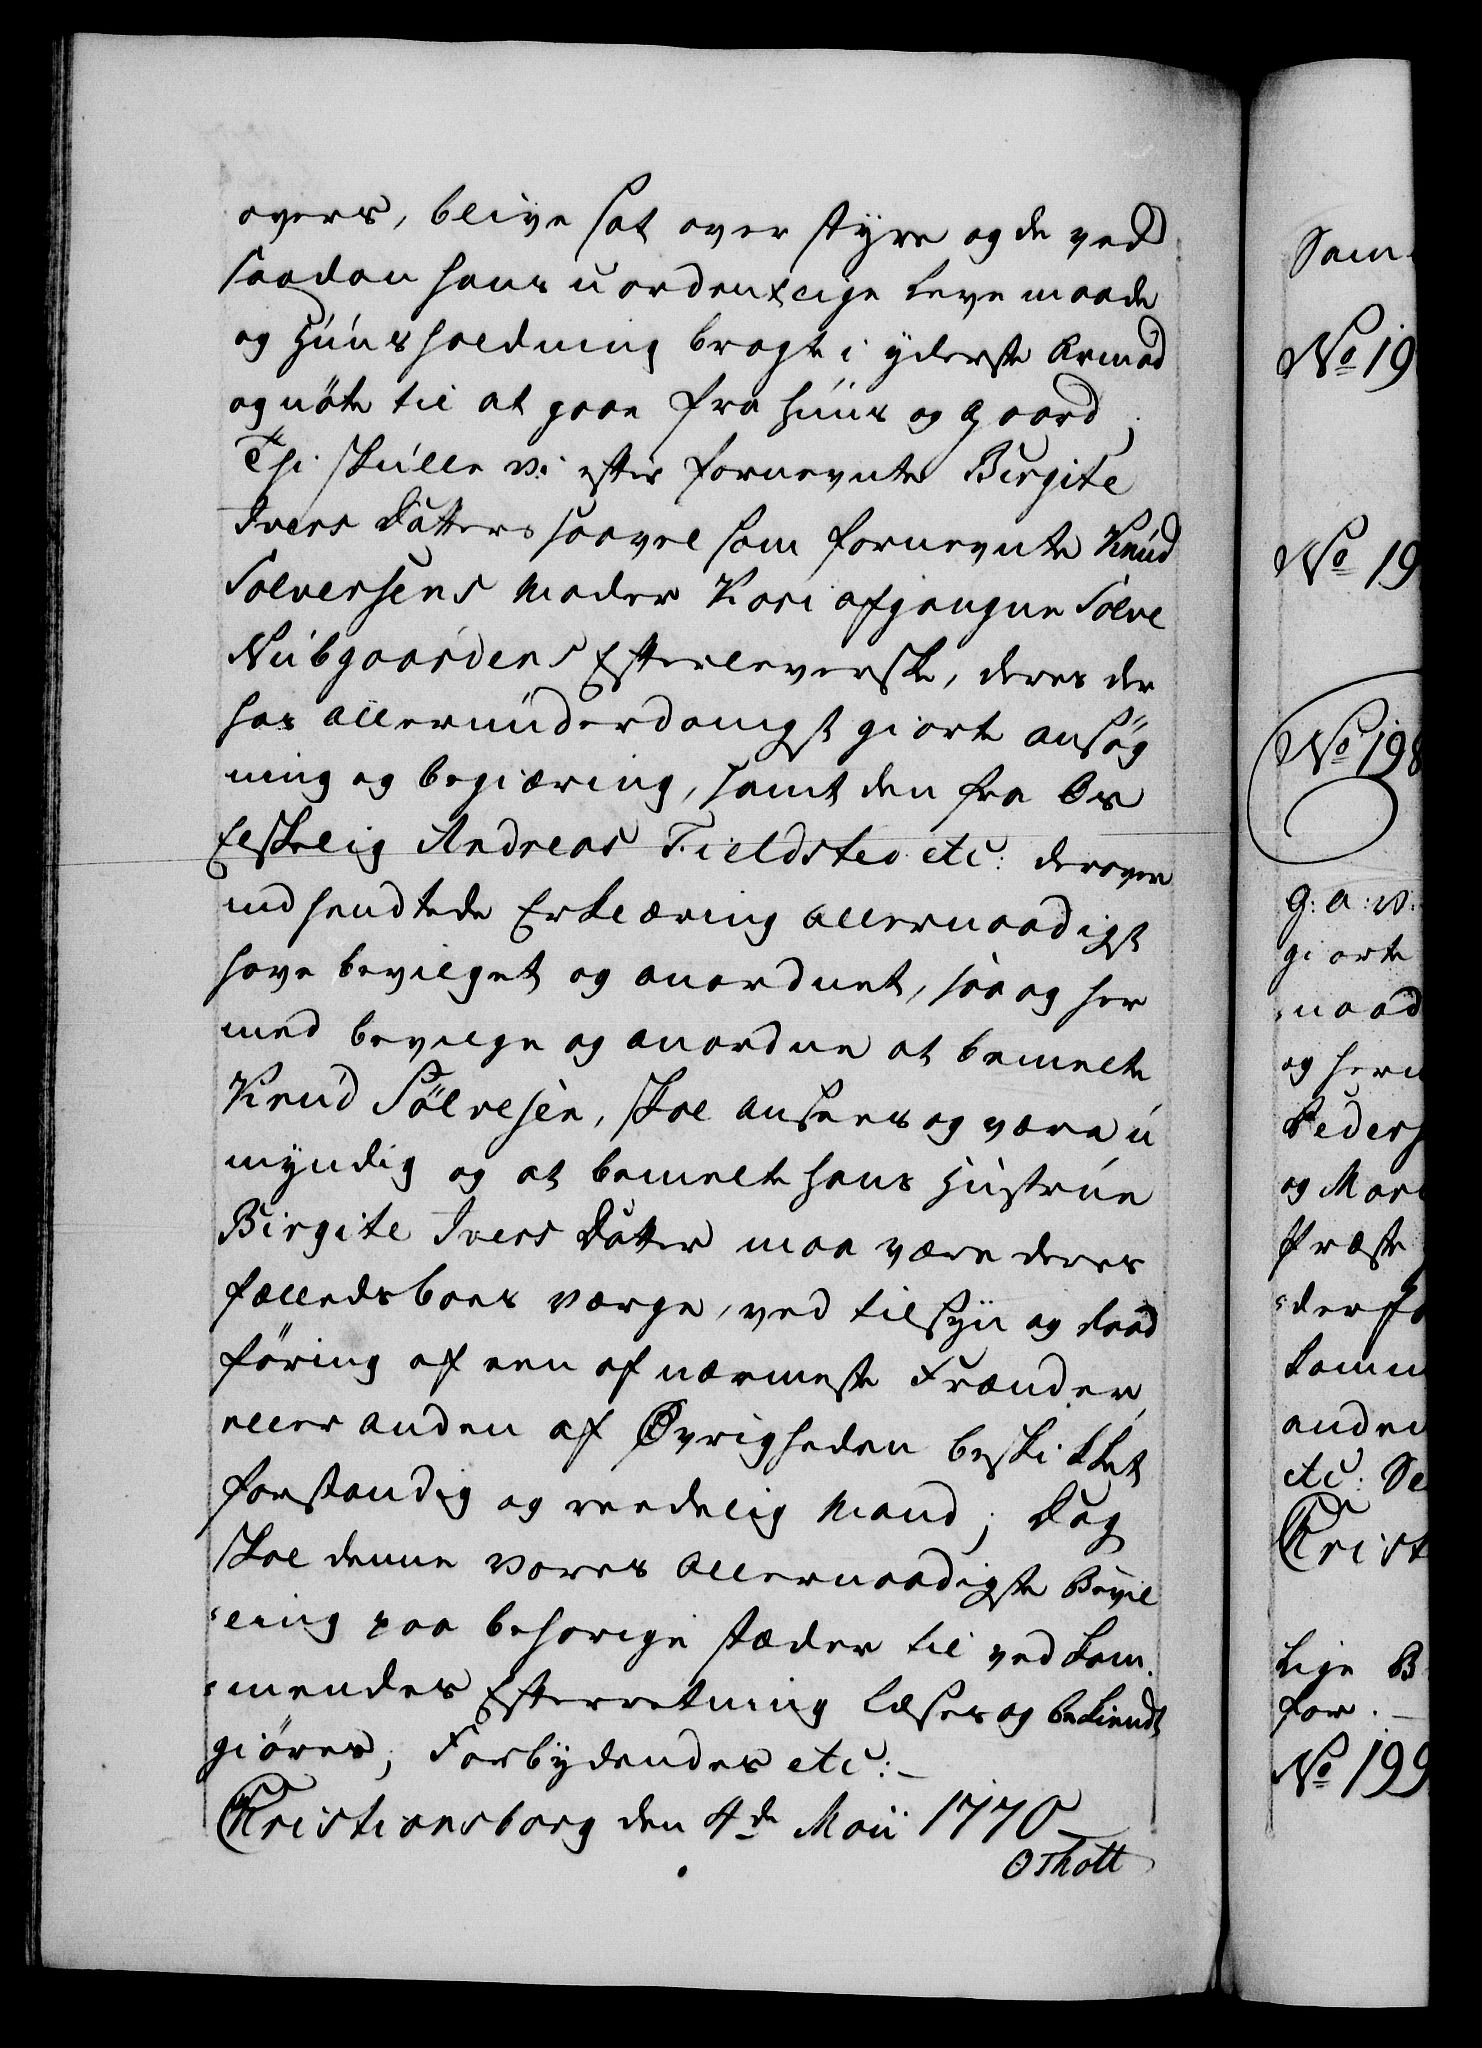 overs, blive sat over styre og de ved
saadan hans uordentlige Leve maade
og Huusholdning bragt i yderste Armod
og nöte til at gaae fra huus og gaard;
Thi skulle vi efter fornevnte Birgite
Ivers Datters saavel som fornevnte Knud
Solversens Moder Kari afgangne Solve
Nubgaardens Efterleverske, deres der
hos allerunderdanigst giorte ansög
ning og begiæring, samt den fra Os
Elskelig Andreas Fieldsted etc: derover
indsendtede Erklæring allernaadigst
have bevilget og anordnet, saa og her
med bevilge og anordne at bemelte
Knud Sölvesen, skal ansees og være u
myndig og at bemelte hans Hustrue
Birgite Ivers Datter maa være deres
fælledsboes Værge, ved tilsyn og Raad
föring af een af nærmeste Frænder,
eller anden af Øvrigheden beskikket
forstandig og reedelig Mand; Dog
skal denne vores allernaadigste Bevil
ling paa behørige stæder til vedkom
mendes Efterretning læses og bekiendt
giöres; Forbydendes etc:
Christiansborg den 4de Maii 1770
O Thott
Sam
No 19
No 19
No 198
g: a: v:
giorte
naad
og herm
Peders
og Mar
Præste
anden
etc: Se
Christ
Lige B
for.
No 199